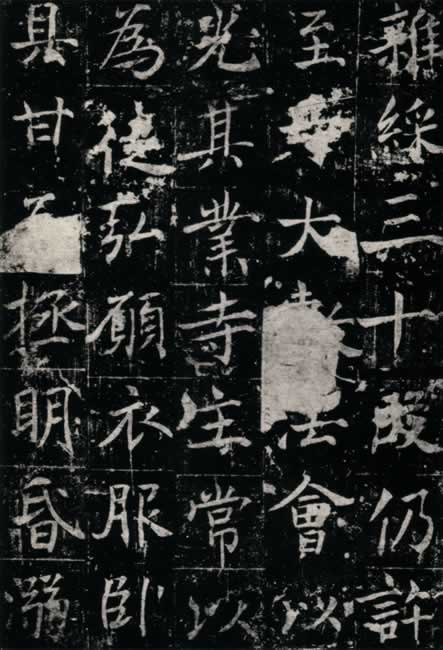 雜綵三十段仍許
至大法會以
光其業寺主常以
為徒弘願衣服卧
具甘拯明昏溺